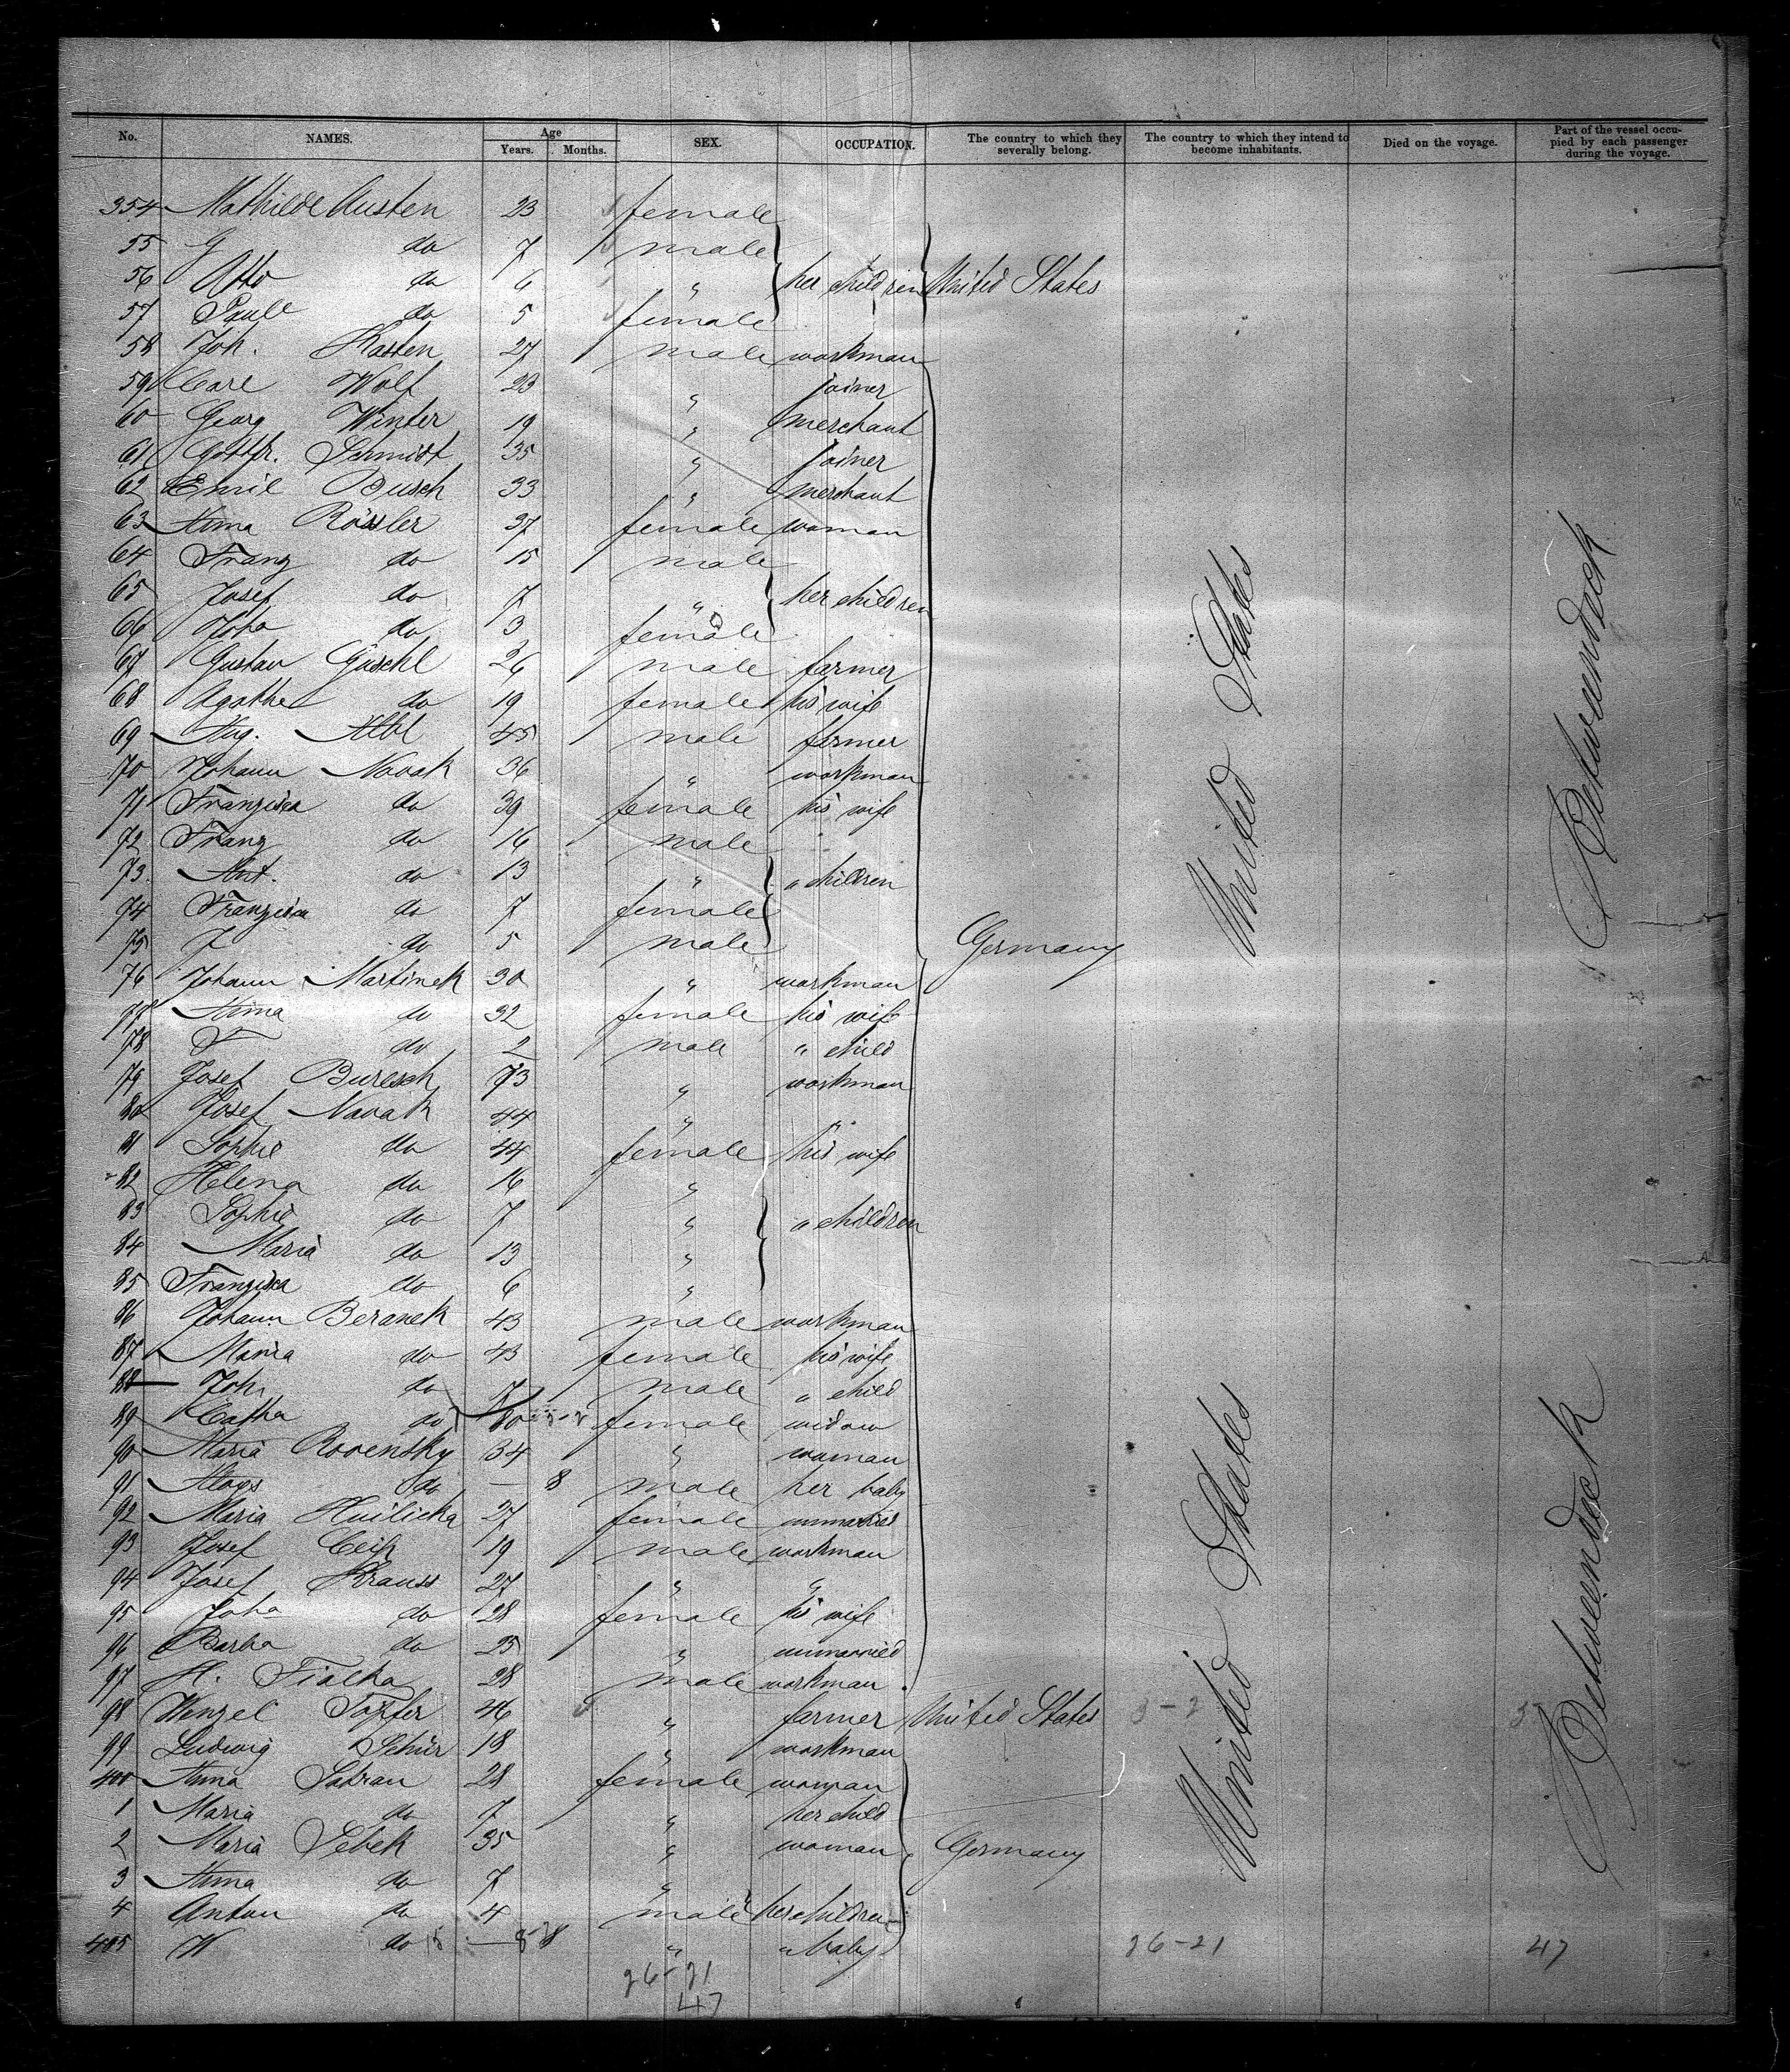 No. NAMES. Age Years. Months. SEX. OCCUPATION. The country to which they severally belong. The country to which they intend to become inhabitants. Died on the voyage. Part of the vessel occupied by each passenger during the voyage.
354 Mathilde Austen 23 female
55 G do 7 male
56 Otto do 6 " her children United States
57 Paule do 5 female
58 Joh. Kasten 27 male workman
59 Carl Wolf 23 " joiner
60 Georg Winter 19 " merchant
61 Gottfr. Schmidt 35 " joiner
62 Emil Busch 33 " merchant
63 Anna Rössler 37 female woman
64 Franz do 15 male
65 Josef do 7 " her children
66 Joha do 3 female
67 Gustav Güschl 26 male farmer
68 Agathe do 19 female his wife
69 Aug. Albl 45 male farmer
70 Johann Novak 36 " workman
71 Franziska do 39 female his wife
72 Franz do 16 male
73. Ant. do 13 " " children
74 Franziska do 7 female
75 J do 5 male Germany United States Betweendeck
76 Johann Martinek 30 " workman
77 Anna do 32 female his wife
78 F do 2 male " child
79 Josef Buresch 73 " workman
80 Josef Novak 44 " "
81 Sophie do 44 female his wife
82 Helena do 16 "
83 Sophie do 7 " " children
84 Maria do 13 "
85 Franziska do 6 "
86 Johann Beranek 43 male workman
87 Maria do 43 female his wife
88 Joh. do 7 male " child
89 Catha do 80 female widow
90 Maria Rovensky 34 " woman
91 Aloys do — 8 male her baby
92 Maria Huilicka 27 female unmarried
93 Josef Ceik 19 male workman
94 Josef Krauss 27 " "
95 Joha do 28 female his wife
96 Barba do 25 " unmarried
97 H. Fialka 28 male workman
98 Wenzel Topfer 46 " farmer United States
99 Ludwig Schür 18 " workman
400 Anna Satran 28 female woman
1 Maria do 7 " her child
2 Maria Sebek 35 " woman Germany United States Betweendeck
3 Anna do 7 "
4 Anton do 4 male her children
405 W do — 8 " " baby 26-21 47
26-21
47